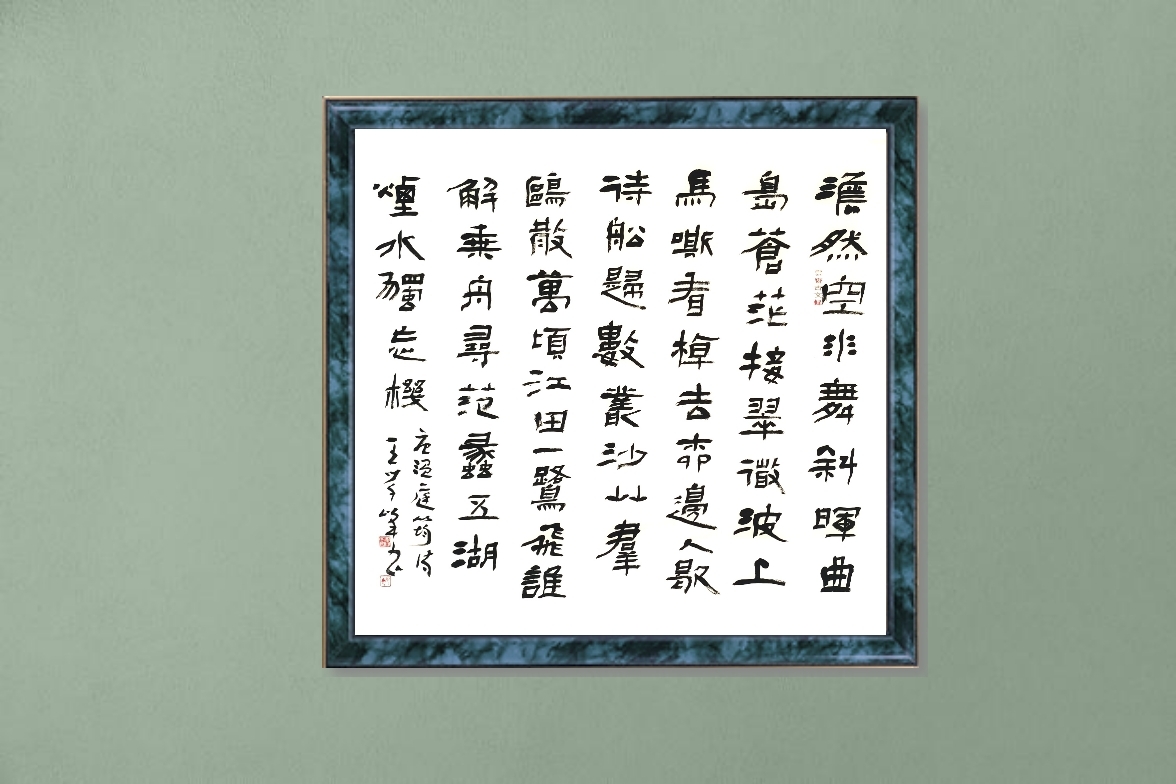 澹然空水對斜暉曲
島蒼茫接翠微波上
馬嘶看棹去柳邊人歇
待船歸數叢沙艸羣
鷗散萬頃江田一鷺飛誰
解乘舟尋范蠡五湖
煙水獨忘機
唐温庭筠诗
王学岭书